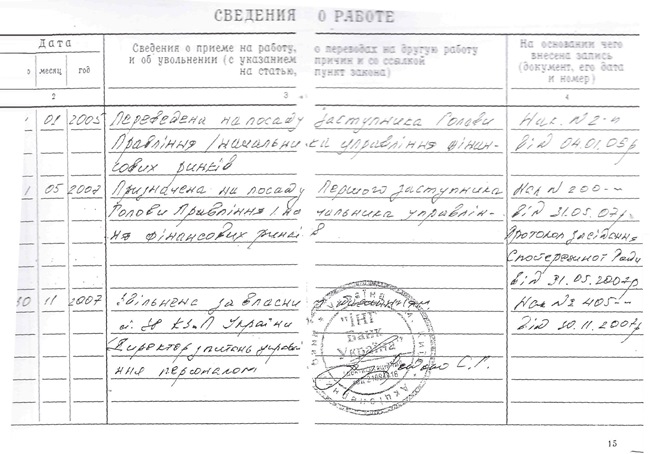 СВЕДЕНИЯ О РАБОТЕ
Дата
месяц год
Сведения о приеме на работу, о переводах на другую работу
и об увольнении (с указанием причин и со ссылкой
на статью, пункт закона)
На основании чего
внесена запись
(документ, его дата
и номер)
2 3 4
01 2005 Переведена на посаду Заступника Голови Нак. №2-п
Правління /начальника управління фінан- від 04.01.05р
сових ринків
05 2007 Призначена на посаду Першого заступника Нак. №200-
Голови Правління /начальника управлін- від 31.05.07р.
ня фінансових ринків Протокол засідання
Спостережної Ради
від 31.05.2007р
30 11 2007 Звільнена за власним Нак. №2 405-
ст. 38 КЗпП України від 30.11.2007р.
Директор з питань управлін-
ня персоналом
"ІНГ
Банк
Україна"
15